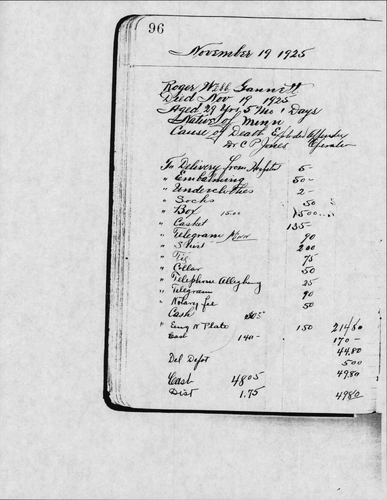 96
November 19 1925
Roger Webb Gannett
Died Nov 19 1925
Aged 29 Yrs 5 Mo 1 Days
Native of Minn
Cause of Death
Dr C P Jones
To Delivery from Hospital 5-
" Embalming 50-
" Underclothes 2-
" Socks 50
" Box 15.00 1500
" Casket 135-
" Telegram Minn 90
" Shirt 200
" Tie 75
" Collar 50
" Telephone Allegheny 25
" Telegram 90
" Notary fee 50
Cash
" Eng N Plate 150 214 80
140- 170-
44.80
Del Depot 500
4980
Cash 48 05
Dist 1.75 4980